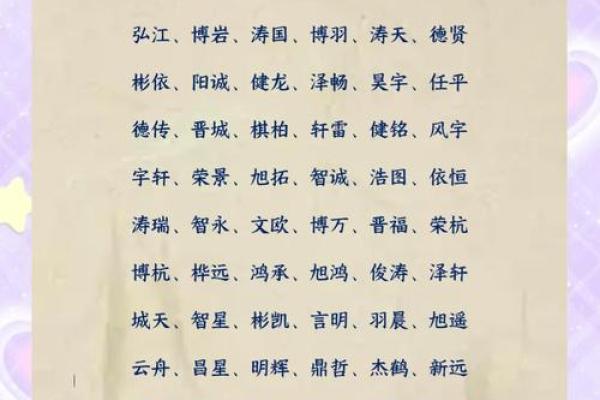 弘江、博岩、涛国、博羽、涛天、德贤
彬依、阳诚、健龙、泽畅、昊宇、任平
德传、晋城、棋柏、轩雷、健铭、风宇
宇轩、荣景、旭拓、智诚、浩图、依恒
涛瑞、智永、文欧、博万、晋福、荣杭
博杭、桦远、鸿承、旭鸿、俊涛、泽轩
城天、智星、彬凯、言明、羽晨、旭遥
云舟、昌星、明辉、鼎哲、杰鹤、新远